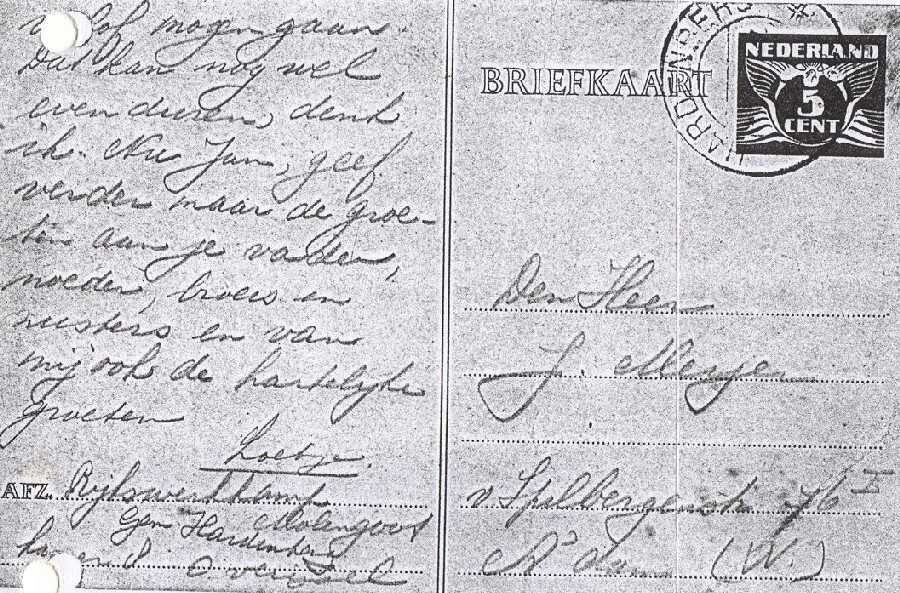 verlof mogen gaan.
Dat kan nog wel
even duren, denk
ik. Nu Jan, geef
verder maar de groe-
ten aan je vader,
moeder, broers en
zusters en van
mij ook de hartelijke
groeten
Loetje.
AFZ. Rijkswerkkamp
Molengoot
Gem Hardenberg
Overijsel
BRIEFKAART
HARDENBERG
NEDERLAND
5
CENT
Den Heer
J. Meijer
v Spilbergenstr. 76 I
A'dam (W.)